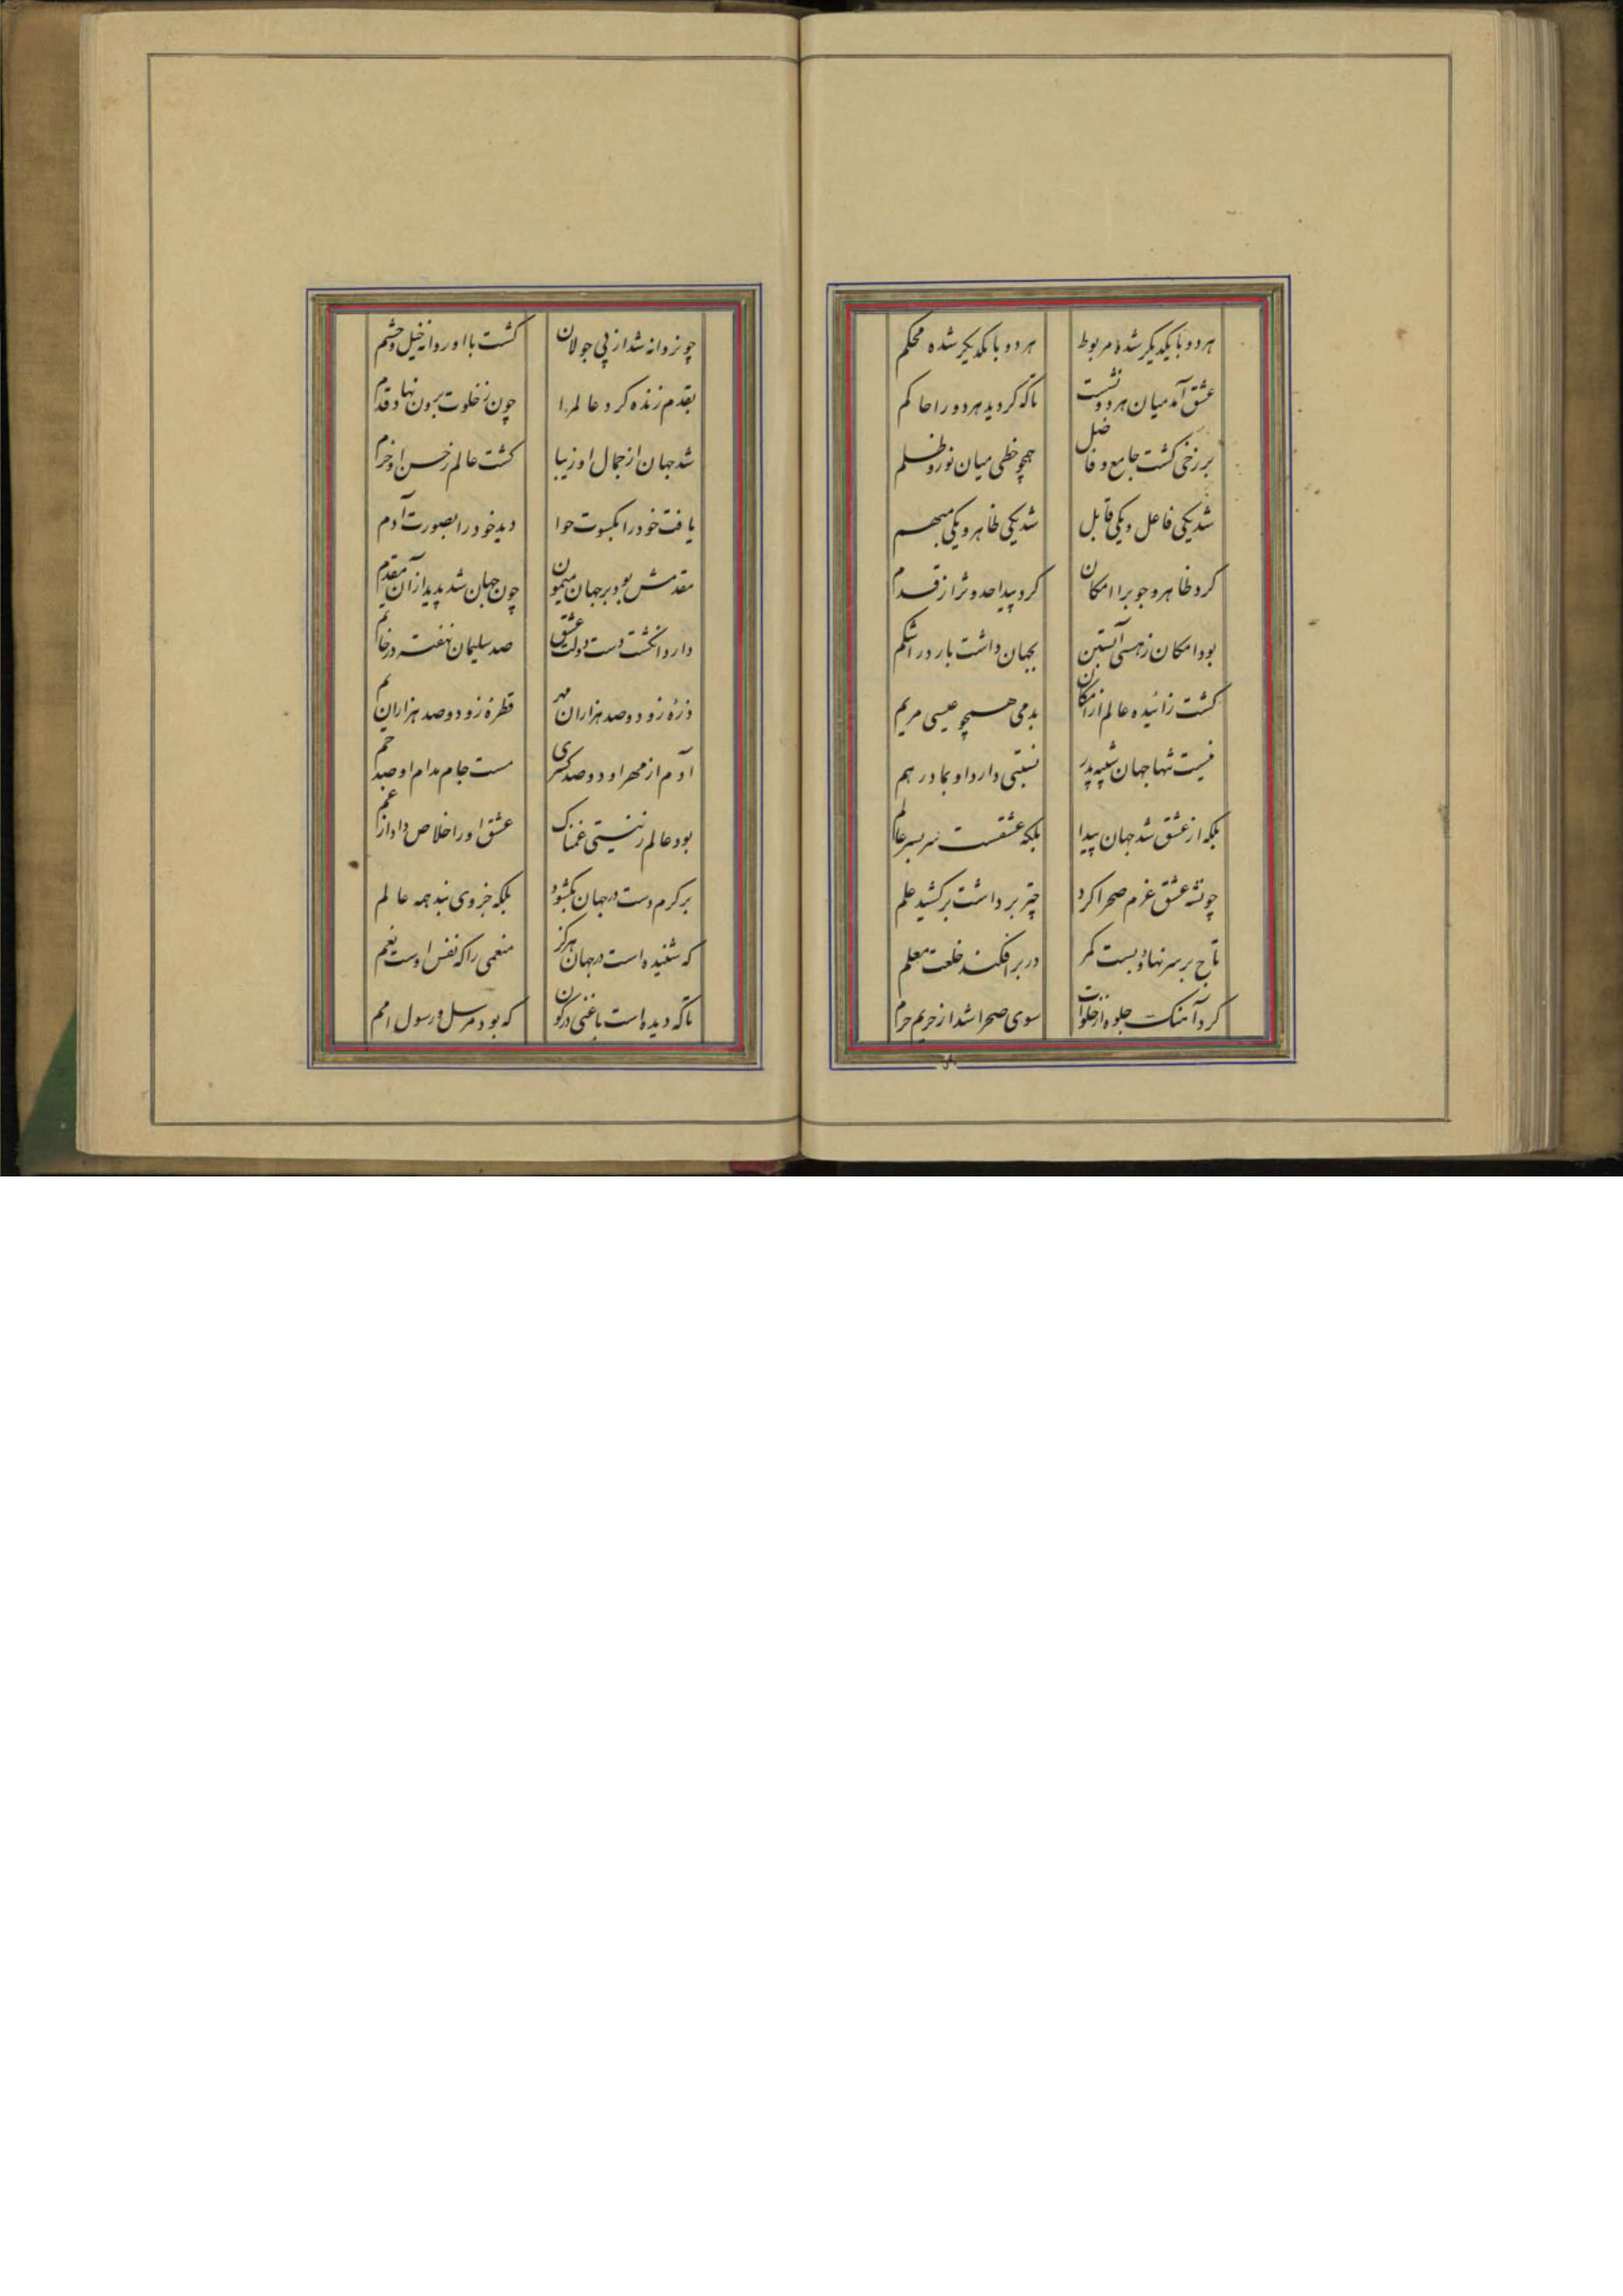 هر دو با یکدیگر شده مربوط هر دو با یکدیگر شده محکم
عشق آمد میان هر دو نشست تا که کردید هر دو را حاکم
برزخی کشت جامع و فاضل همچو خطی میان نور و ظلم
شد یکی فاعل و یکی قابل شد یکی ظاهر و یکی مبهم
کرد ظاهر وجوب را امکان کرد پیدا حدوث را ز قدم
بود امکان ز هستی آبستن بجهان داشت بار در اشکم
کشت زائیده عالم از امکان بدمی همچو عیسی مریم
نیست تنها جهان شبیه پدر نسبتی دارد او بمادر هم
بلکه از عشق شد جهان پیدا بلکه عشقست سر بسر عالم
چونشه عشق عزم صحرا کرد چتر برداشت بر کشید علم
تاج بر سر نهاد و بست کمر در بر افکند خلعت معلم
کرد آهنک جلوه از خلوات سوی صحرا شد از حریم حرم
چو نروانه شد از پی جولان کشت با او روانه خیل و حشم
بقدم زنده کرد عالم را چون ز خلوت برون نهاد قدم
شد جهان از جمال او زیبا کشت عالم ز حسن او خرم
یافت خود را بکسوت حوا دید خود را بصورت آدم
مقدمش بود بر جهان میمون چون جهان شد پدید از آن مقدم
دارد انکشت دست دولت عشق صد سلیمان نهفته در خاتم
ذرهٔ زو دو صد هزاران مهر قطرهٔ زو دو صد هزاران یم
آدم از مهر او دو صد کسری مست جام مدام او صد جم
بود عالم ز نیستی غمناک عشق او را خلاص داد از غم
بر کرم دست در جهان بگشود بلکه جز وی نبد همه عالم
که شنیده است در جهان هرکز منعمی را که نفس اوست نعم
تا که دیده است یا غنی در کون که بود مرسل و رسول امم